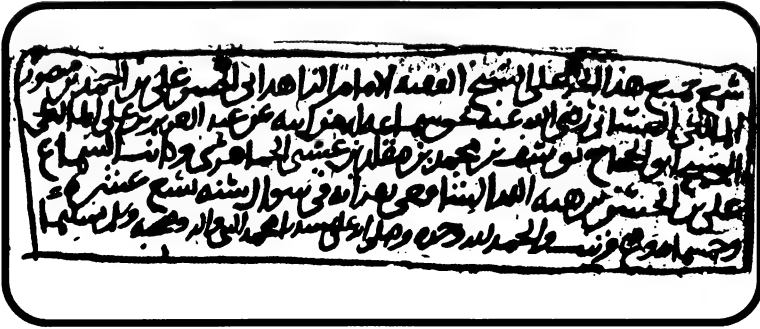 سمع جميع هذا الجزء على الشيخ الفقيه الامام الزاهد ابي الحسن علي بن احمد بن منصور
المالكي الغساني رضي الله عنه بحق سماعه من عن عبد العزيز بن
الشيخ ابو الحجاج يوسف بن محمد بن مقلد بن عيسى الجماهري وكاتب السماع
علي بن الحسن بن هبة الله الشافعي بقراءته في شوال سنة تسع عشرة
وخمسمائة والحمد لله وحده وصلواته على سيدنا محمد النبي واله وصحبه وسلم تسليما